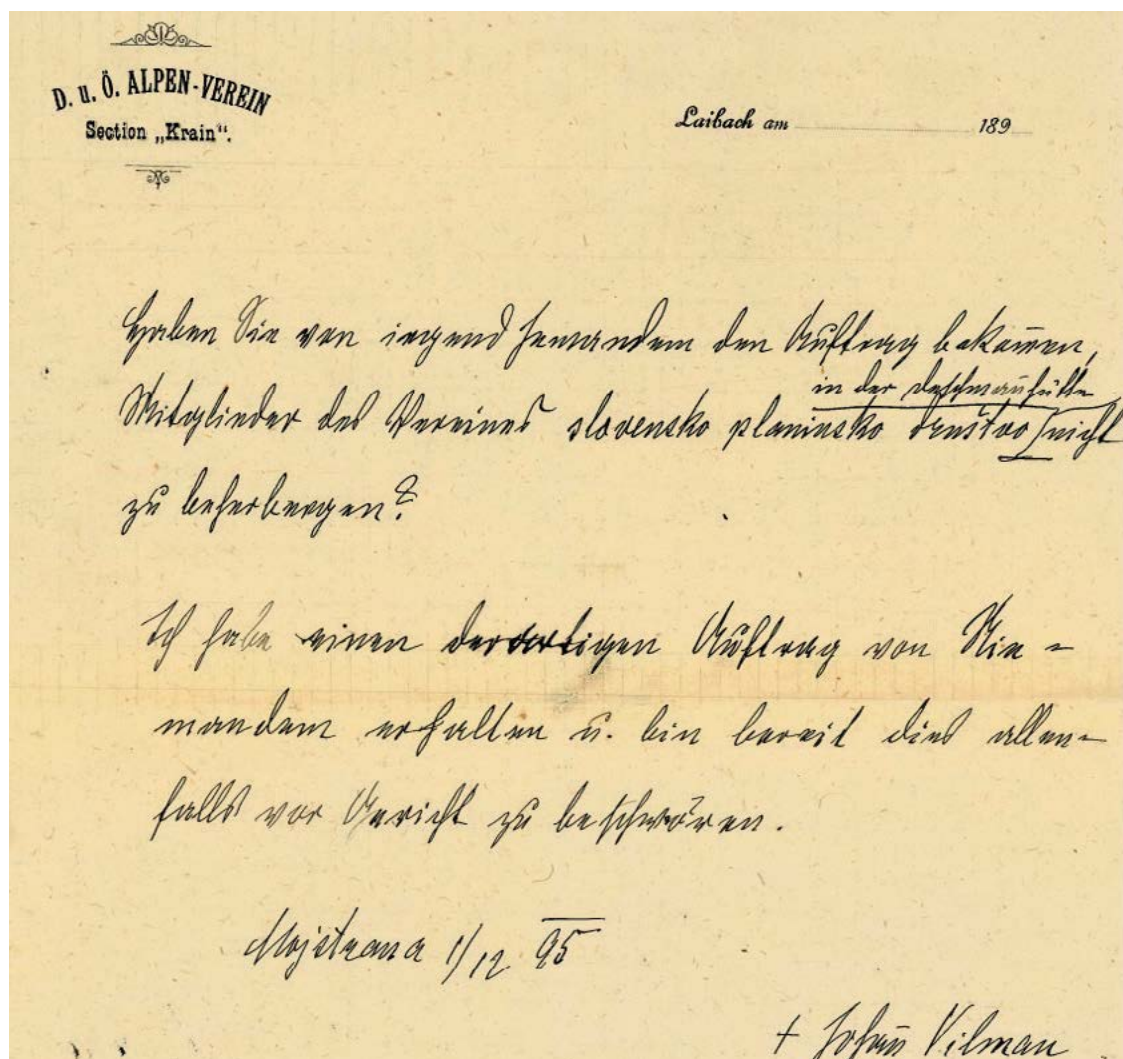 D. u. Ö. ALPEN-VEREIN
Section „Krain“.
Laibach am 189
Haben Sie von irgend Jemandem den Auftrag bekom̅en,
in der Deschmanhütte
Mitglieder des Vereines slovensko planinsko društvo nicht
zu beherbergen?
Ich habe einen derartigen Auftrag von Nie=
mandem erhalten u. bin bereit dies allen=
falls vor Gericht zu beschwören.
Mojstrana 1/12 95
+ Johan̅ Vilman